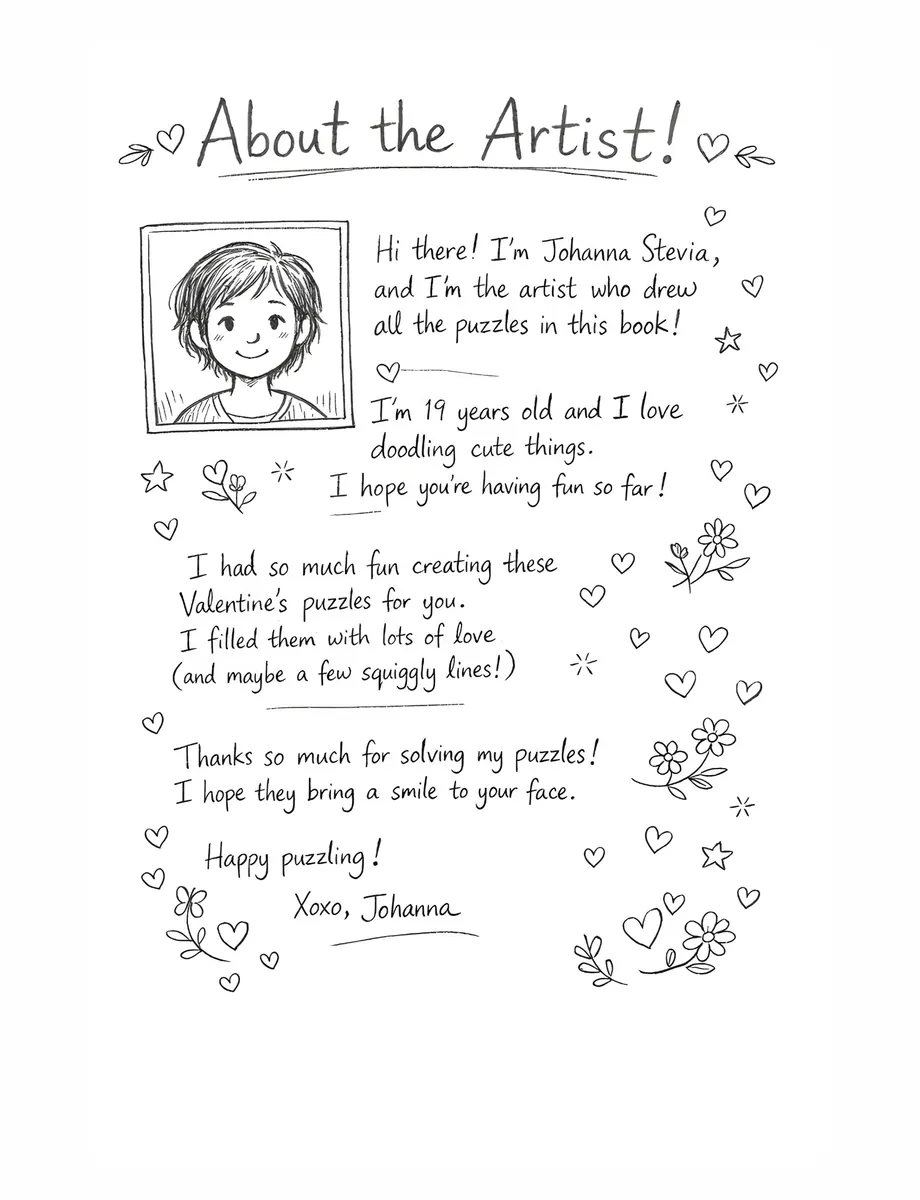 About the Artist!
Hi there! I'm Johanna Stevia,
and I'm the artist who drew
all the puzzles in this book!
I'm 19 years old and I love
doodling cute things.
I hope you're having fun so far!
I had so much fun creating these
Valentine's puzzles for you.
I filled them with lots of love
(and maybe a few squiggly lines!)
Thanks so much for solving my puzzles!
I hope they bring a smile to your face.
Happy puzzling!
Xoxo, Johanna